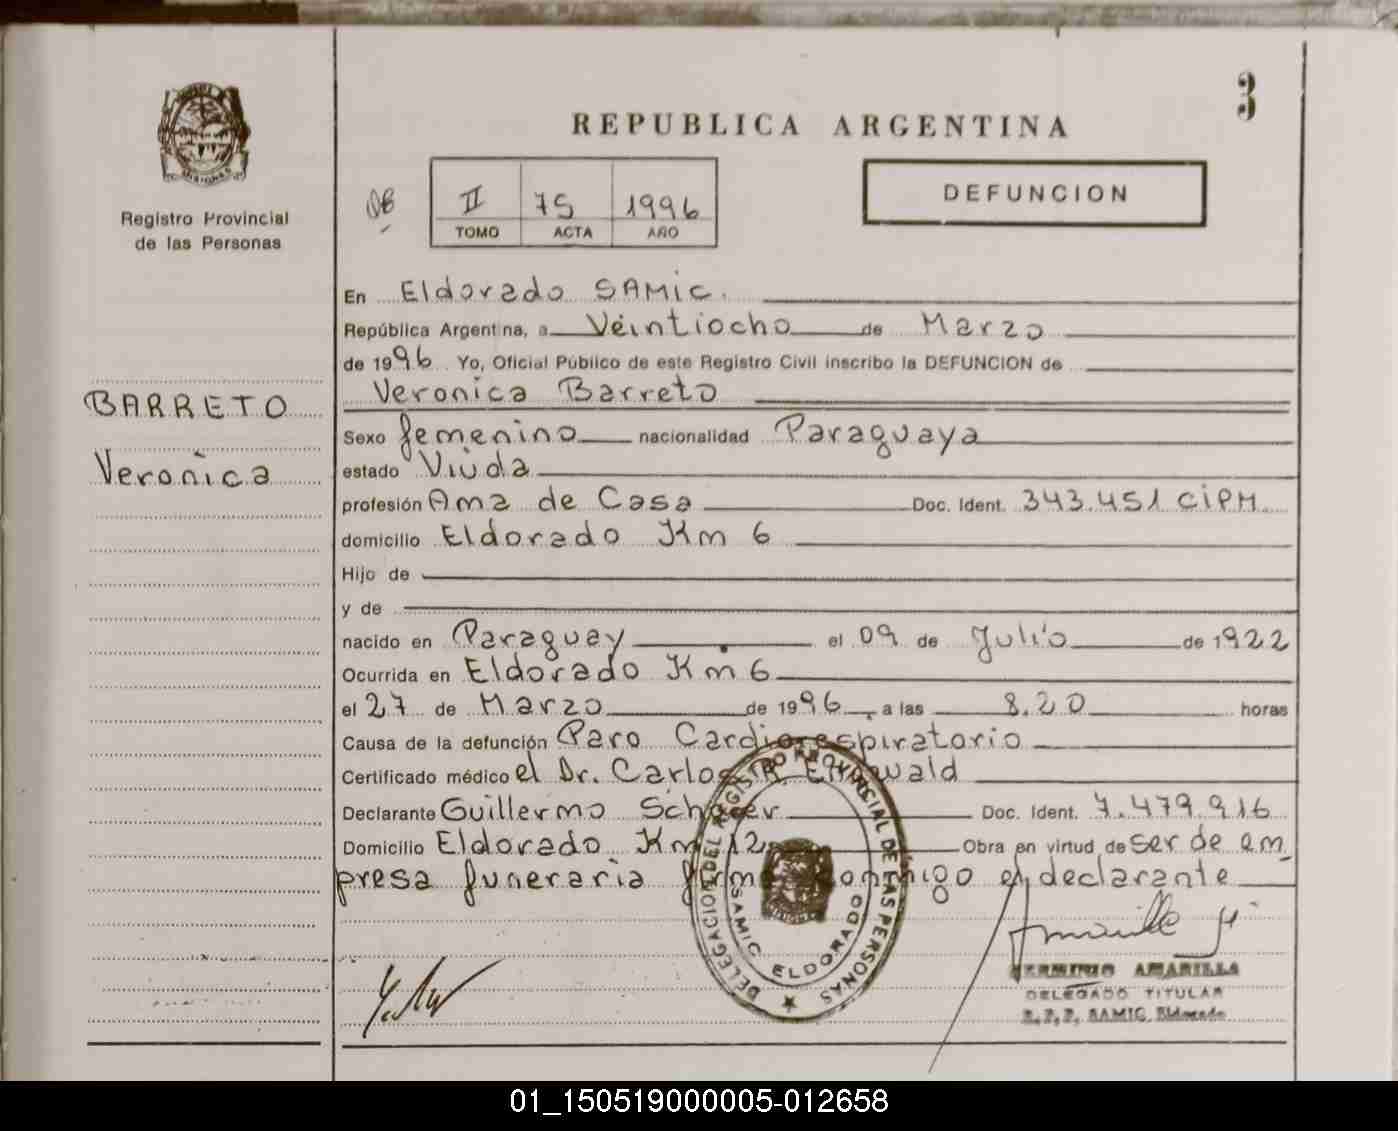 3
REPUBLICA ARGENTINA
MISIONES
Registro Provincial
de las Personas
II 75 1996
TOMO ACTA AÑO
DEFUNCION
BARRETO
Veronica
En Eldorado SAMIC.
República Argentina, a Veintiocho de Marzo
de 1996 Yo, Oficial Público de este Registro Civil inscribo la DEFUNCION de
Veronica Barreto
Sexo femenino nacionalidad Paraguaya
estado Viuda
profesión Ama de Casa Doc. Ident. 343.451 CIPM
domicilio Eldorado Km 6
Hijo de
y de
nacido en Paraguay el 09 de Julio de 1922
Ocurrida en Eldorado Km 6
el 27 de Marzo de 1996, a las 8.20 horas
Causa de la defunción Paro Cardiorespiratorio
Certificado médico el Dr. Carlos
Declarante Guillermo Doc. Ident. 7.479.916
Domicilio Eldorado Km 12 Obra en virtud de ser de em
presa funeraria firma conmigo el declarante
DELEGACION DEL REGISTRO PROVINCIAL DE LAS PERSONAS
SAMIC ELDORADO
HERMINIO AMARILLA
DELEGADO TITULAR
R.P.P. SAMIC Eldorado
01_150519000005-012658